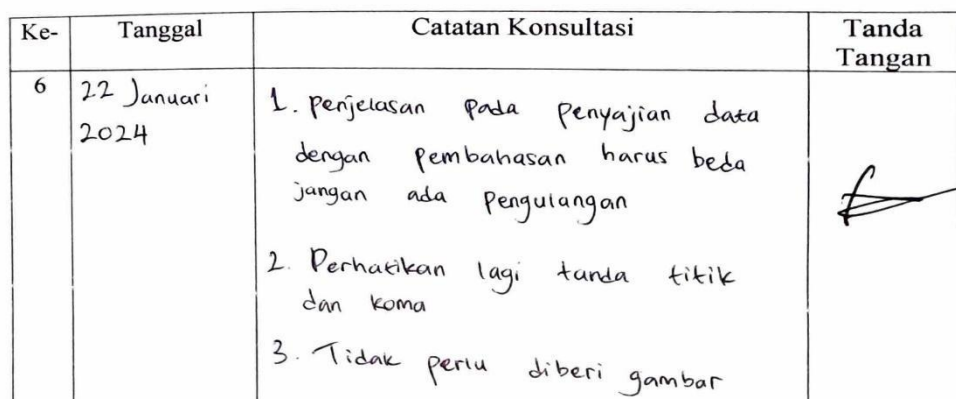 Ke- Tanggal Catatan Konsultasi Tanda
Tangan
6 22 Januari 1. penjelasan pada penyajian data
2024 dengan pembahasan harus beda
jangan ada pengulangan
2. Perhatikan lagi tanda titik
dan koma
3. Tidak perlu diberi gambar